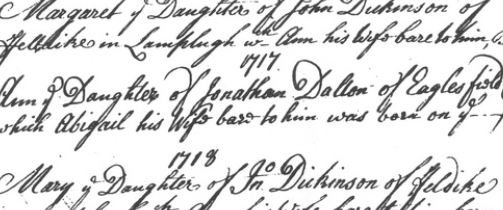 Margaret ye Daughter of John Dickinson of
Felldike in Lamplugh wch Ann his Wife bare to him,
1717.
Ann ye Daughter of Jonathan Dalton of Eaglesfield
which Abigail his Wife bare to him was born on ye
1718
Mary ye Daughter of Jno Dickinson of Felldike